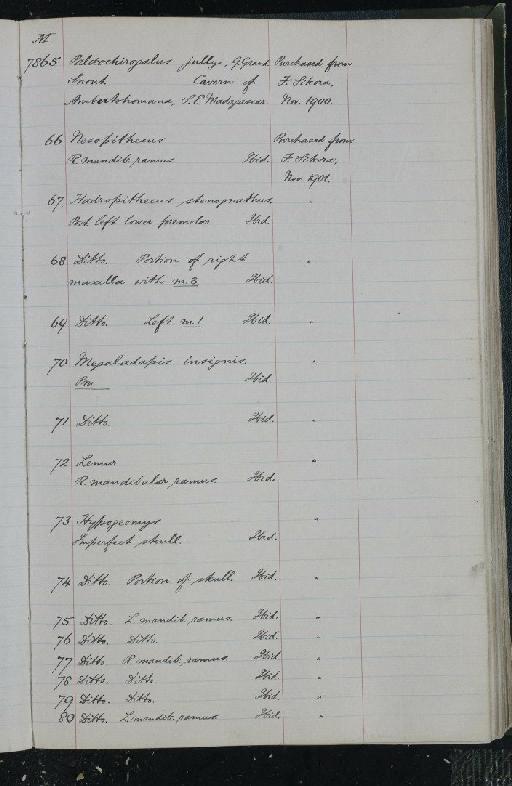 M
7865 Palaeochiropalus jullyi, G. Grand. Purchased from
Snout. Cavern of F. Sikora,
Ambertohomana, S.E. Madagascar Nov. 1900.
66 Nesopithecus Purchased from
R. mandib. ramus Ibid. F. Sikora,
Nov. 1901.
67 Hadropithecus stenognathus "
Post. left lower premolar Ibid.
68 Ditto. Portion of right "
maxilla with m.3 Ibid.
69 Ditto. Left m.1 Ibid. "
70 Megaladapis insignis "
Pm Ibid.
71 Ditto. Ibid. "
72 Lemur "
R. mandibular ramus Ibid.
73 Hypogeomys "
Imperfect skull. Ibid.
74 Ditto. Portion of skull. Ibid. "
75 Ditto. L. mandib. ramus. Ibid. "
76 Ditto. Ditto. Ibid. "
77 Ditto. R. mandib. ramus. Ibid "
78 Ditto. Ditto. Ibid. "
79 Ditto. Ditto. Ibid "
80 Ditto. L. mandib. ramus Ibid. "